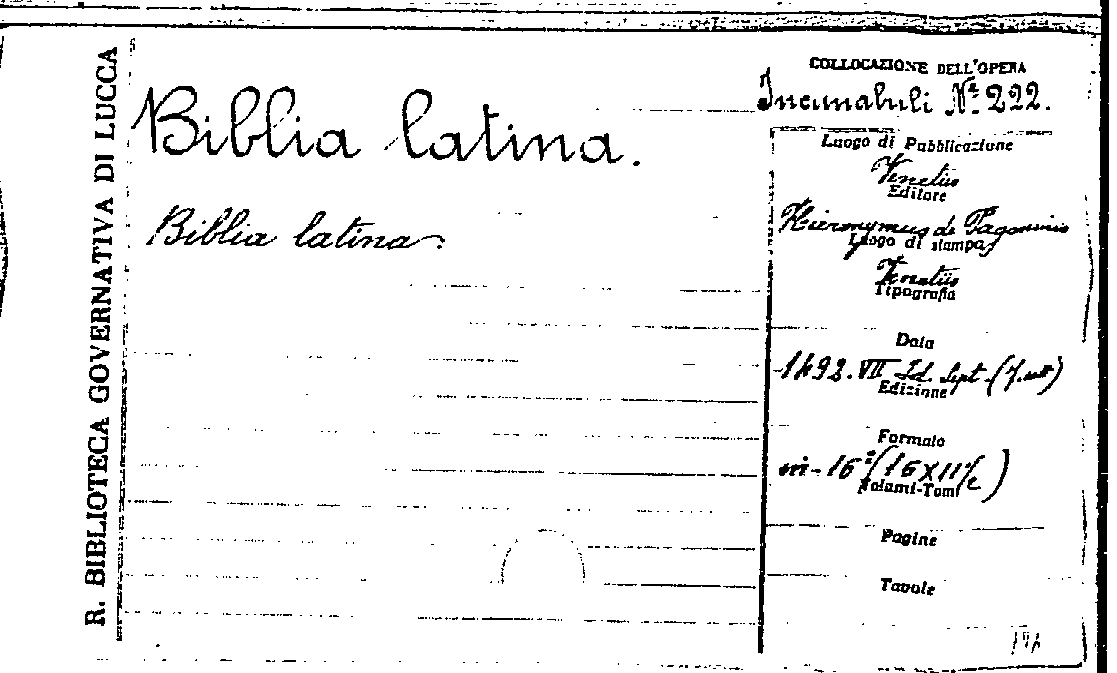 R. BIBLIOTECA GOVERNATIVA DI LUCCA
Biblia latina.
Biblia latina.
COLLOCAZIONE DELL'OPERA
Incunabuli Nº 222.
Luogo di Pubblicazione
Venetiis
Editore
Hieronymus de Paganinis
Luogo di stampa
Venetiis
Tipografia
Data
1492. VII Id. Sept. (7. sett)
Edizione
Formato
in-16º (16X11½)
Volumi-Tomi
Pagine
Tavole